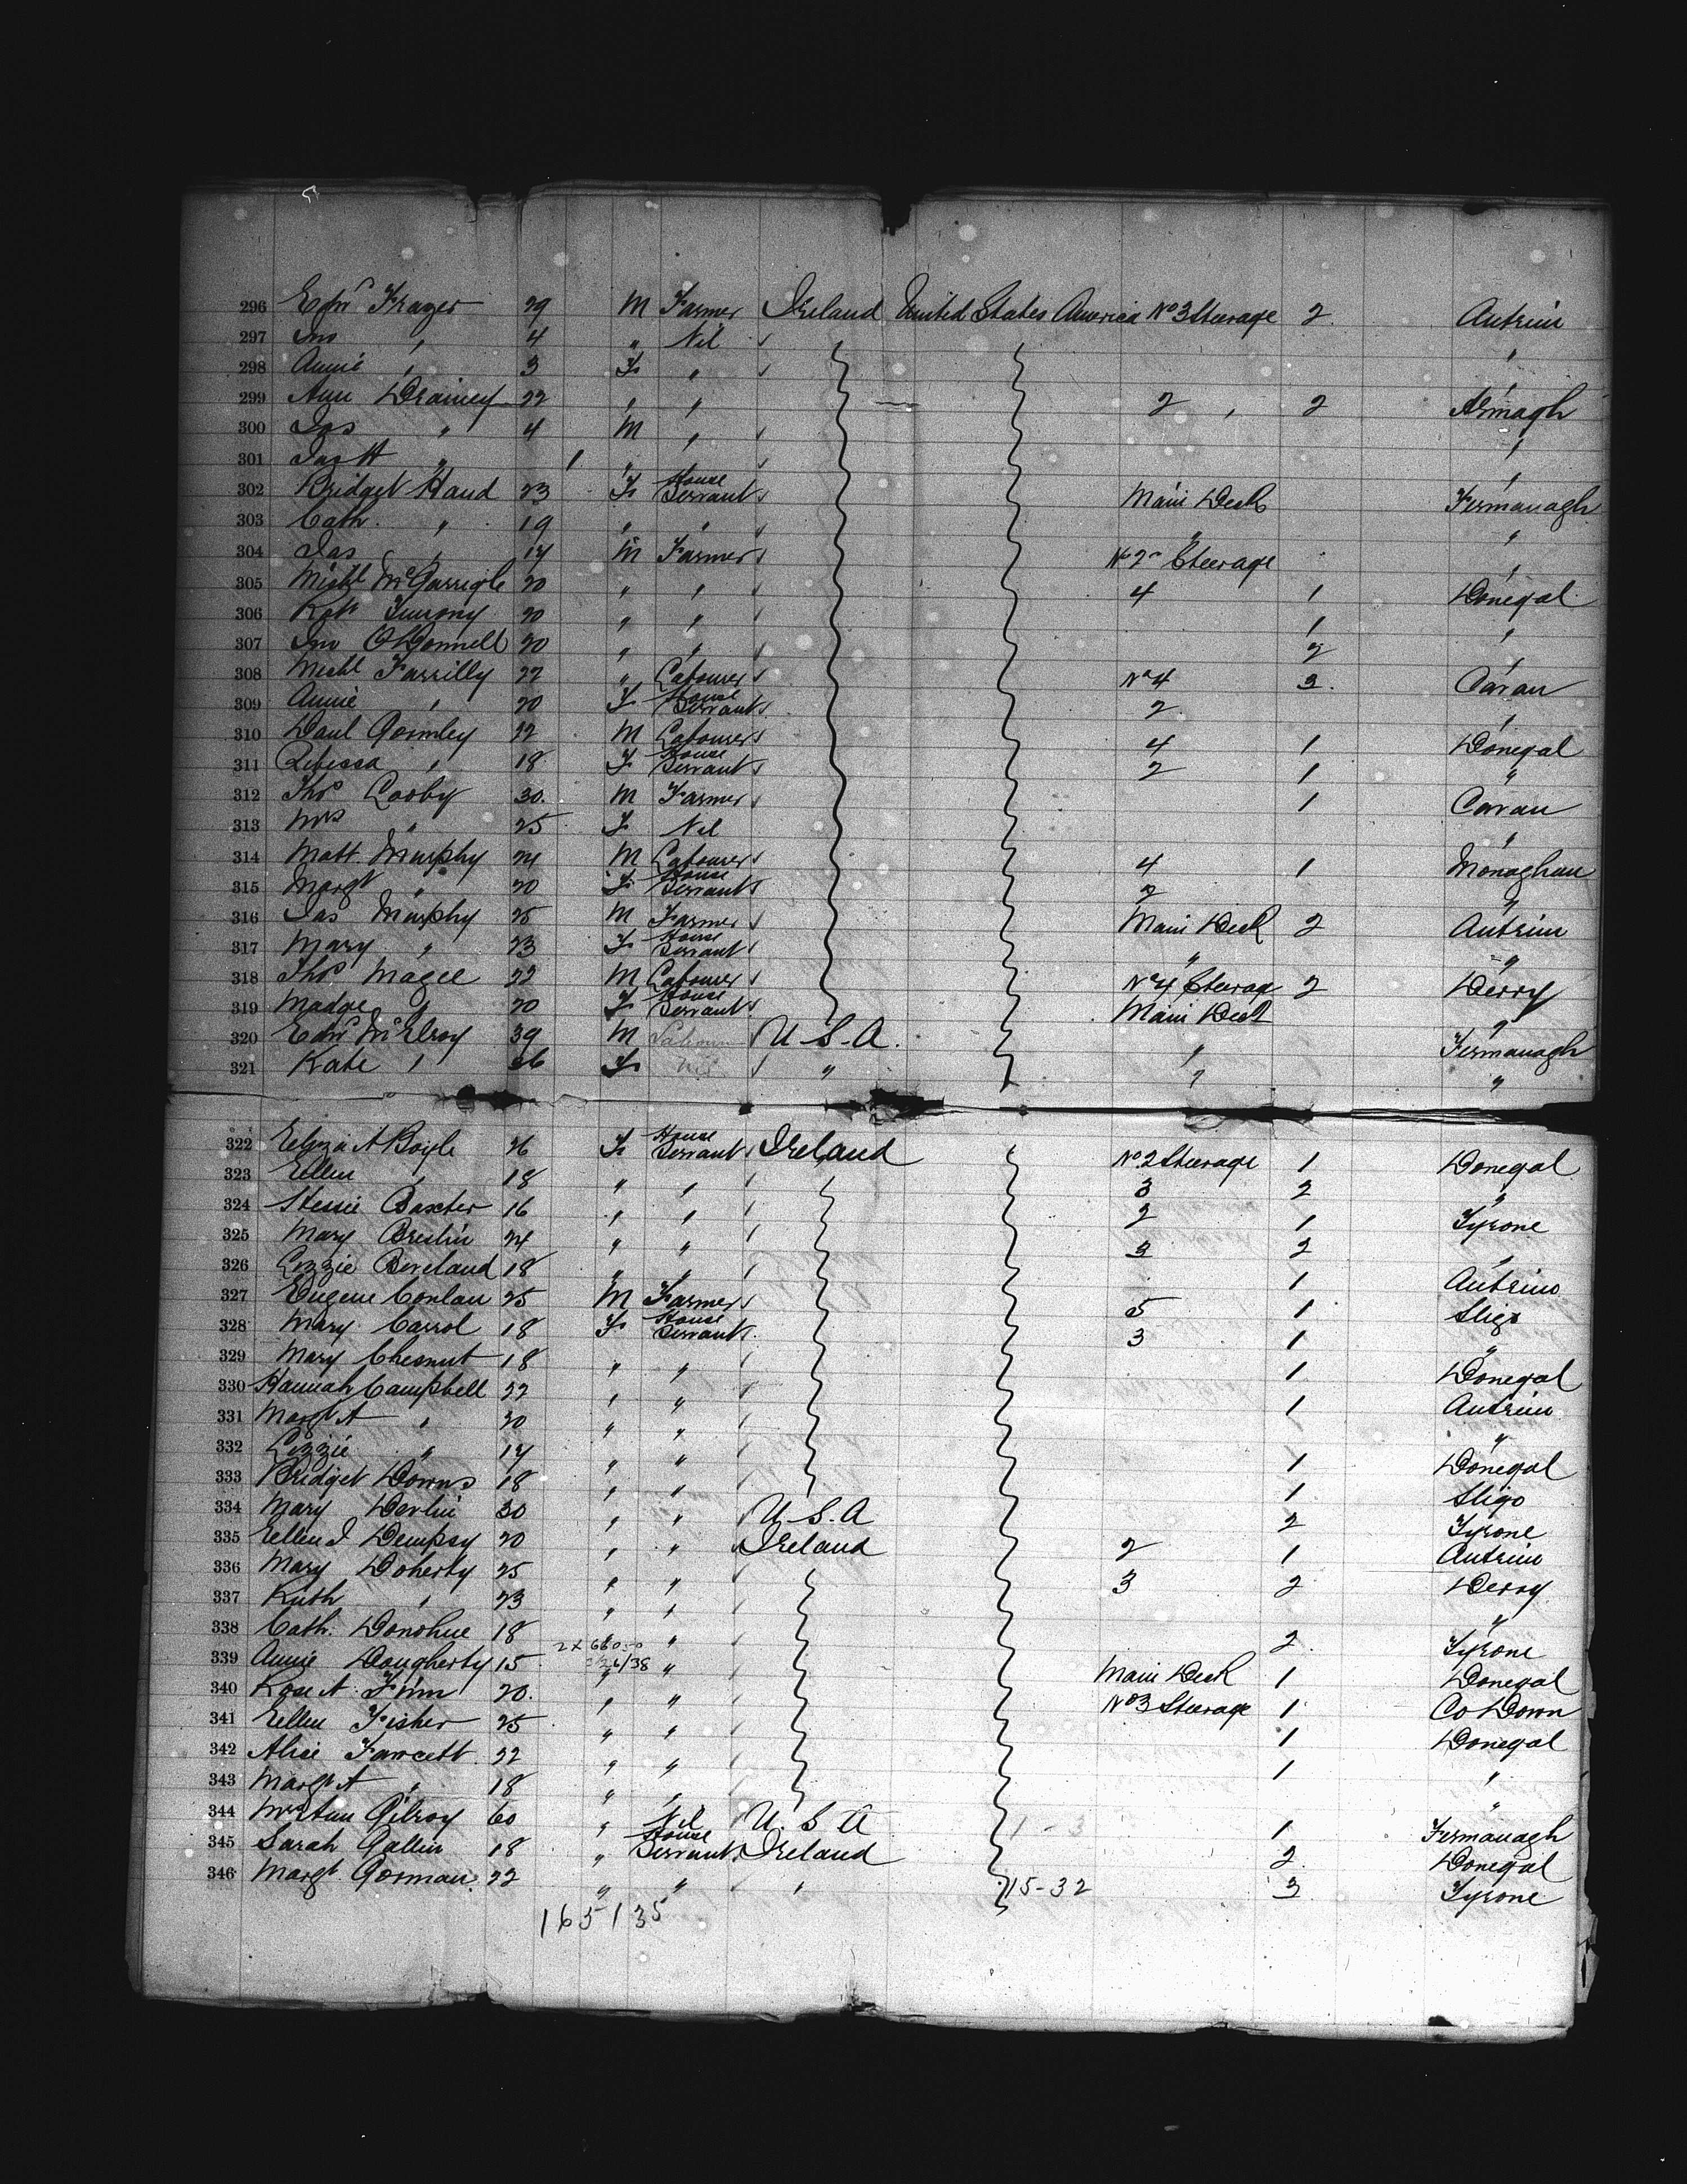 296 Edwd Frazer 29 M Farmer Ireland United States America No 3 Steerage 2 Antrim
297 Jno " 4 " Nil "
298 Annie " 3 F " "
299 Ann Drainey 22 " " 2 " 2 Armagh
300 Jas " 4 M " "
301 Jas H " 1 " " "
302 Bridget Hand 23 F House Servant Main Deck Fermanagh
303 Cath. " 19 " " " "
304 Jas " 14 M Farmer No 2 Steerage "
305 Michl McGarrigle 20 " " 4 1 Donegal
306 Robt 20 " " 1 "
307 Jno O'Donnell 20 " " 2 "
308 Michl Farrilly 22 " Labourer No 4 3 Cavan
309 Annie " 20 F House Servant 2 "
310 Danl Gormley 22 M Labourer 4 1 Donegal
311 Rebecca " 18 F House Servant 2 1 "
312 Thos Cooby 30 M Farmer 1 Cavan
313 Mrs " 25 F Nil "
314 Matt Murphy 24 M Labourer 4 1 Monaghan
315 Margt " 20 F House Servant 2 "
316 Jas Murphy 25 M Farmer Main Deck 2 Antrim
317 Mary " 23 F House Servant " "
318 Thos Magee 22 M Labourer No 4 Steerage 2 Derry
319 Madge " 20 F House Servant Main Deck "
320 Edwd McElroy 39 M Labourer U.S.A. " Fermanagh
321 Kate " 36 F Nil " " "
322 Eliza A Boyle 26 F House Servant Ireland No. 2 Steerage 1 Donegal
323 Ellen " 18 " " 3 2 "
324 Stessie Baxter 16 " " 2 1 Tyrone
325 Mary Breslin 24 " " 3 2 "
326 Lizzie Bereland 18 " " 1 Antrim
327 Eugene Conlan 25 M Farmer 5 1 Sligo
328 Mary Carrol 18 F House Servant 3 1 "
329 Mary Chesnut 18 " " 1 Donegal
330 Hannah Campbell 22 " " 1 Antrim
331 Margt A " 20 " " "
332 Lizzie " 14 " " 1 Donegal
333 Bridget Downs 18 " " 1 Sligo
334 Mary Devlin 30 " " U.S.A 2 Tyrone
335 Ellen J Dempsy 20 " " Ireland 2 1 Antrim
336 Mary Doherty 25 " " 3 2 Derry
337 Ruth " 23 " " "
338 Cath. Donohue 18 " " 2 Tyrone
339 Annie Dougherty 15 " " Main Deck 1 Donegal
340 Rose A Finn 20 " " No 3 Steerage 1 Co Down
341 Ellen Fisher 25 " " 1 Donegal
342 Alice Fawcett 22 " " 1 "
343 Margt A " 18 " " "
344 Mrs Ann Gilroy 60 " Nil U.S.A 1 - 3 1 Fermanagh
345 Sarah Gallin 18 " House Servant Ireland 2 Donegal
346 Margt Gorman 22 " " " 15-32 3 Tyrone
165135